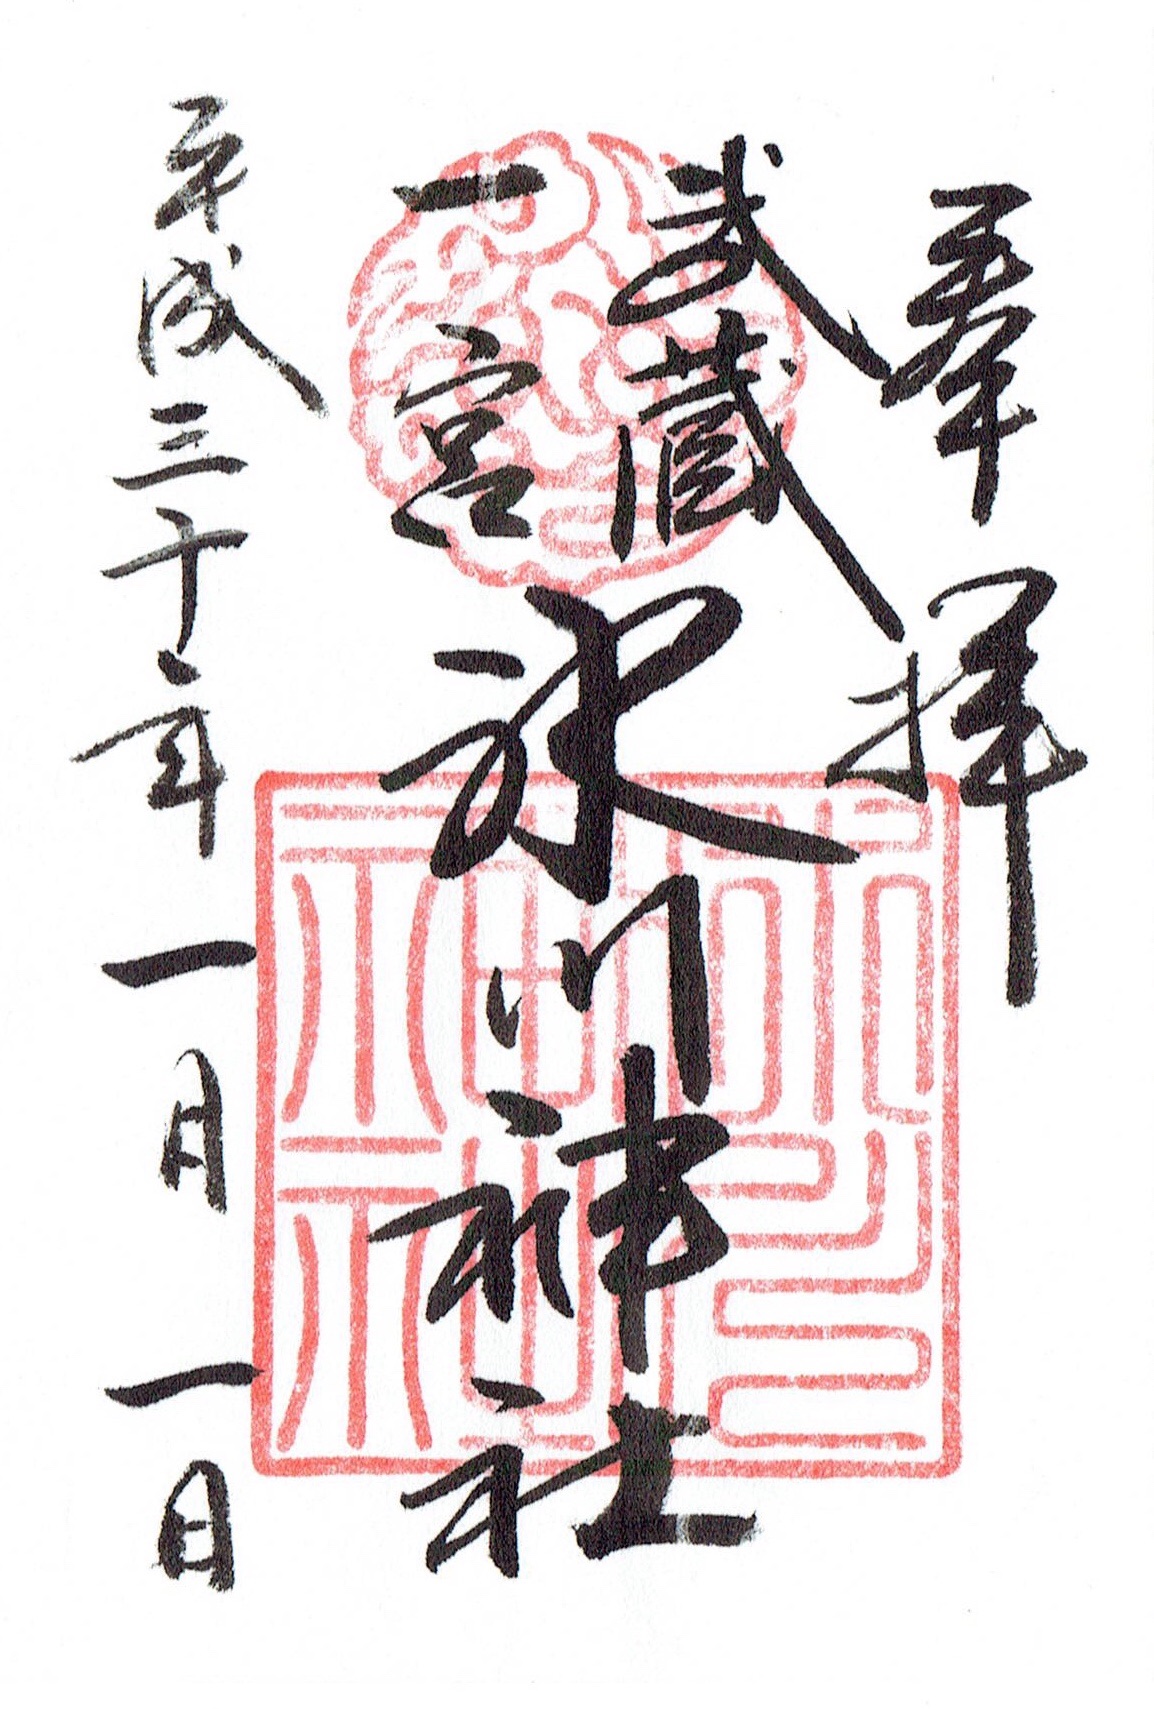 奉拝
武蔵
一宮
氷川神社
平成三十年一月一日
氷川
神社